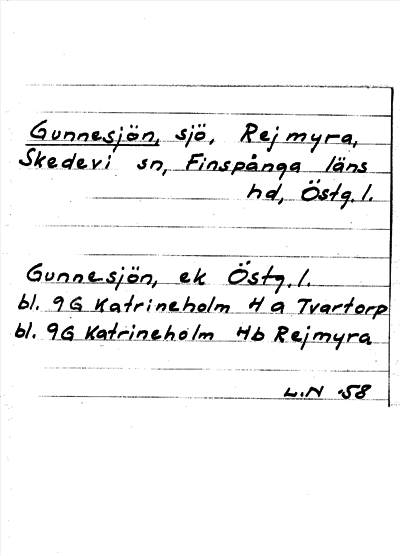 Gunnesjön, sjö, Rejmyra,
Skedevi sn, Finspånga läns
hd, Östg. l.
Gunnesjön, ek Östg. l.
bl. 9G Katrineholm Ha Tvartorp
bl. 9G Katrineholm Hb Rejmyra
L.N -58